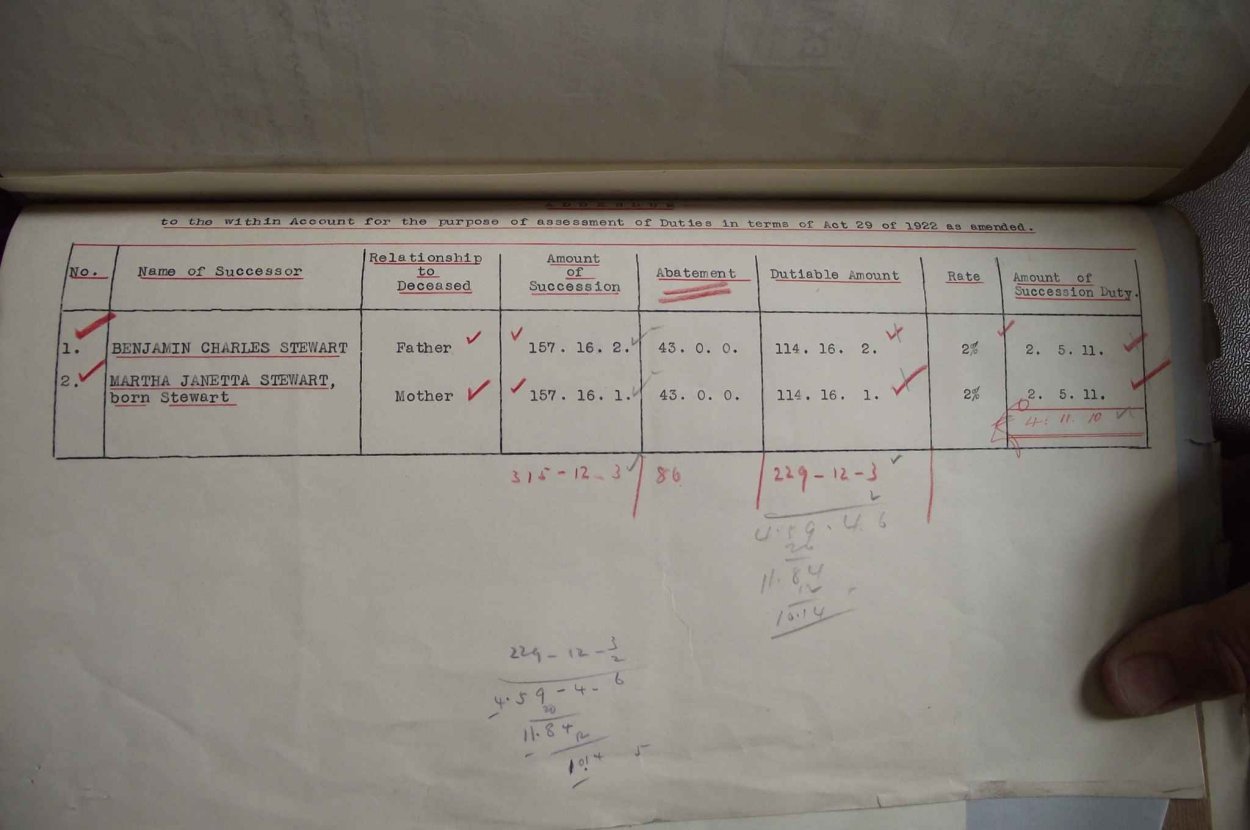 ADDENDUM
to the within Account for the purpose of assessment of Duties in terms of Act 29 of 1922 as amended.
No. Name of Successor Relationship to Deceased Amount of Succession Abatement Dutiable Amount Rate Amount of Succession Duty.
1. BENJAMIN CHARLES STEWART Father 157. 16. 2. 43. 0. 0. 114. 16. 2. 2% 2. 5. 11.
2. MARTHA JANETTA STEWART, born Stewart Mother 157. 16. 1. 43. 0. 0. 114. 16. 1. 2% 2. 5. 11.
4: 11. 10
315-12-3 86 229-12-3
2
4.59.4.6
20
11.84
12
10.14
229-12-3
2
4.59-4-6
20
11.84
12
10.14 5